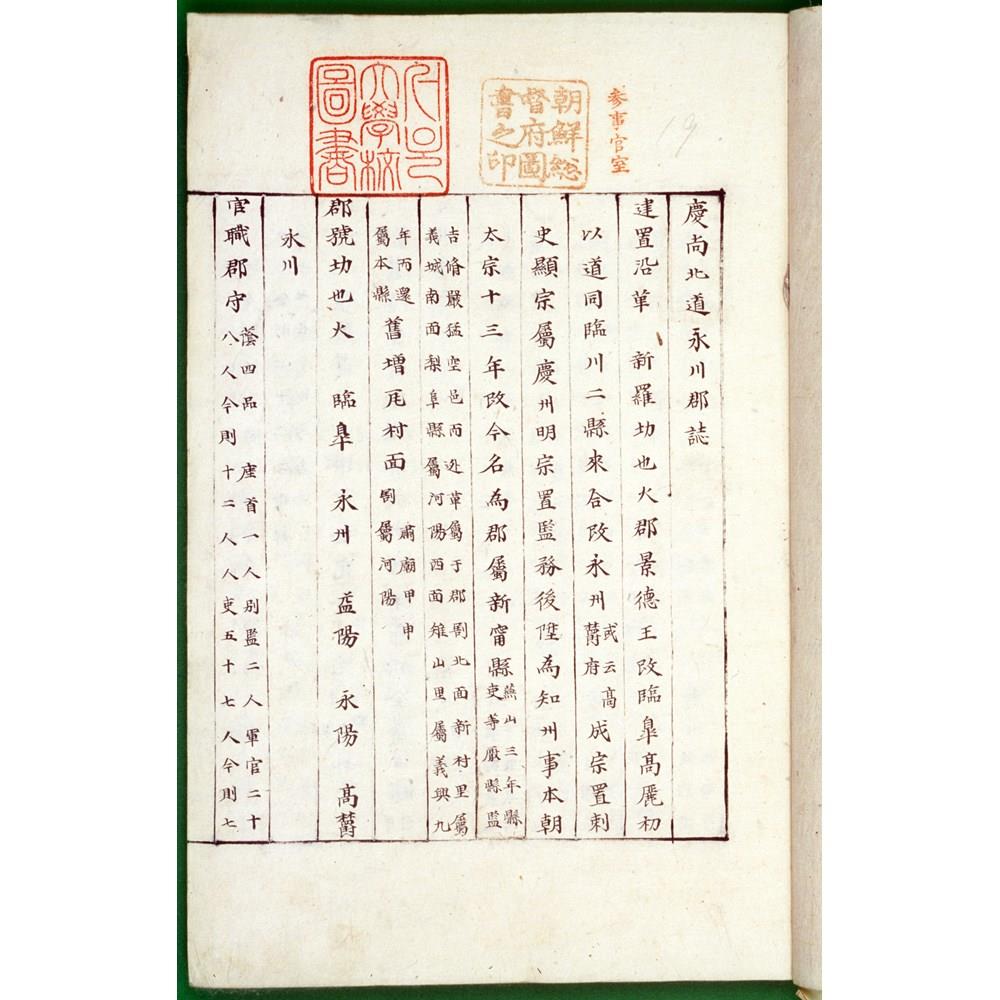 參事官室
19
朝鮮総
督府圖
書之印
서울
大學校
圖書
慶尚北道永川郡誌
建置沿革 新羅切也火郡景德王改臨皐高麗初
以道同臨川二縣來合改永州 或云高欝府 成宗置刺
史顯宗屬慶州明宗置監務後陞為知州事本朝
太宗十三年改今名為郡屬新寗縣 燕山三年縣吏等厭縣監
吉脩嚴猛空邑而逃革屬于郡割北面新村里屬
義城南面梨阜縣屬河陽西面雉山里屬義興九
年而還屬本縣 舊增凥村面 肅廟甲申割屬河陽
郡號切也火 臨皐 永州 益陽 永陽 高欝
永川
官職郡守 蔭四品 座首一人別監二人軍官二十
八人今則十二人人吏五十七人今則七